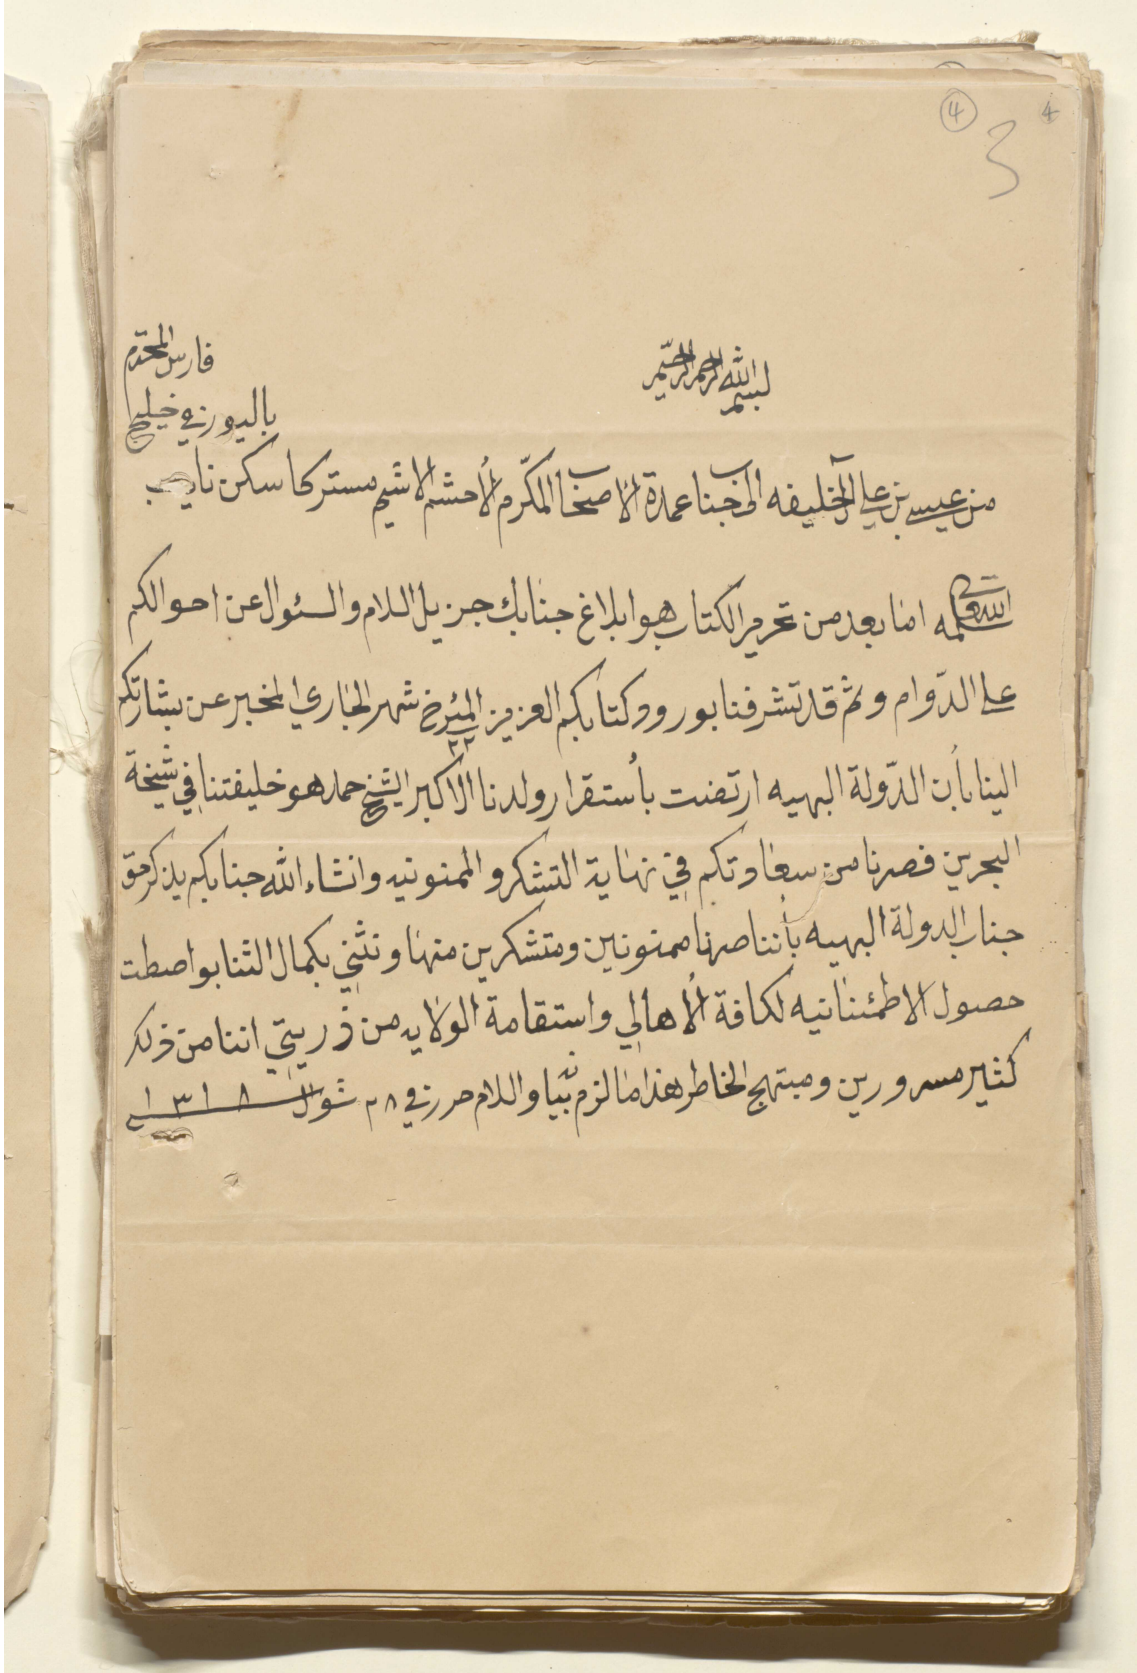 4
4
3
بسم الله الرحمن الرحيم
من عيسى بن علي آل خليفه الى جناب عمدة الاصحاب المكرّم الأحشم الاشيم مستر كاسكن نايب
باليوز في خليج
فارس المحترم
سلمه الله تعالى اما بعد من تحرير الكتاب هو ابلاغ جنابك جزيل السلام والسئوال عن احوالكم
على الدّوام وثم قد تشرفنا بورود كتابكم العزيز المؤرخ ٢٢ شهر الجاري المخبر عن بشارتكم
الينا بأن الدّولة البهيه ارتضت بأستقرار ولدنا الاكبر الشيخ حمد هو خليفتنا في شيخة
البحرين فصرنا من سعادتكم في نهاية التشكر والممنونيه وانشاء الله جنابكم يذكر حق
جناب الدولة البهيه بأننا صرنا ممنونين ومتشكرين منها ونثني بكمال الثنا بواصطت
حصول الاطمئنانيه لكافة الأهالي واستقامة الولايه من ذريتي اننا من ذلك
كثير مسرورين ومبتهج الخاطر هذا ما لزم بيانه والسلام حرر في ٢٨ شوال ١٣١٨